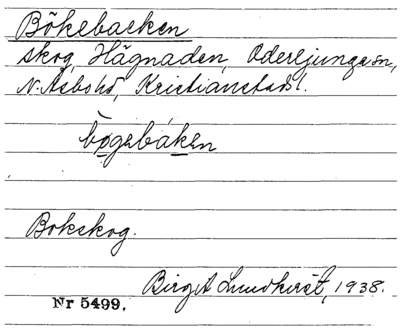 Bökebacken
skog, Hägnaden, Oderljunga sn,
N. Åsbohd, Kristianstads l.
bøgebákɛn
Bokskog.
Birgit Lundkvist, 1938.
Nr 5499.